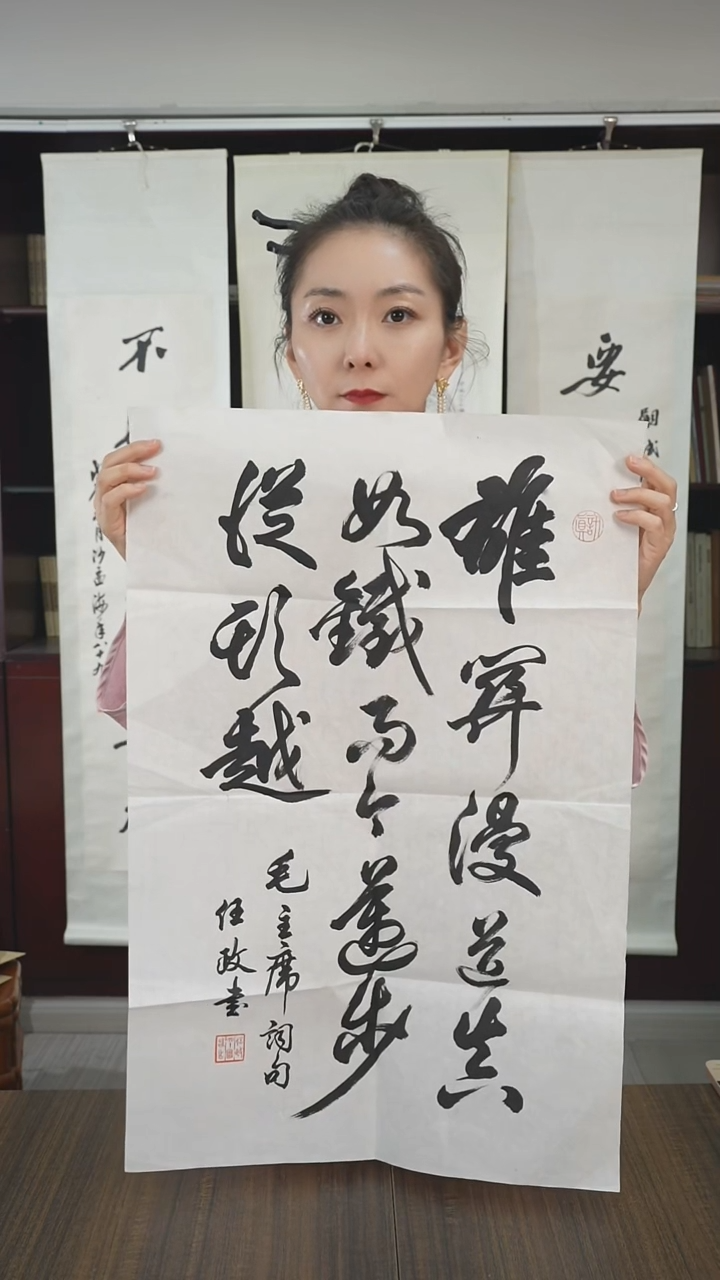 雄關漫道真
如鐵而今邁步
從頭越
毛主席詞句
任政書
不
月沙孟海年八十九
要